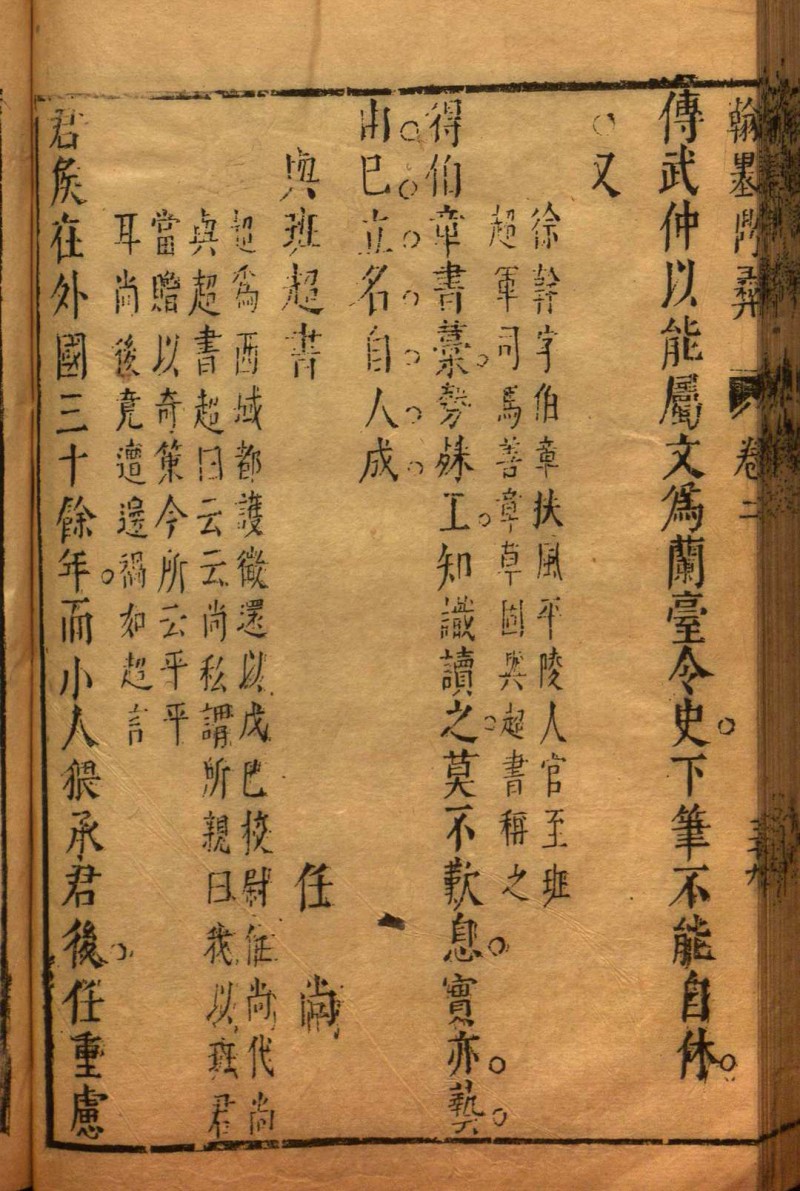 翰墨鼎彝 卷二
傅武仲以能屬文爲蘭臺令史下筆不能自休
又
徐幹字伯章扶風平陵人官至班
超軍司馬善章草固與超書稱之
得伯章書藁勢殊工知識讀之莫不歎息實亦藝
由已立名自人成
與班超書 任尚
超爲西域都護徵還以戊巳校尉任尚代尚
與超書超曰云云尚私謂所親曰我以班君
當贈以奇策今所云平平
耳尚後竟遭邊禍如超言
君矦在外國三十餘年而小人猥承君後任重慮